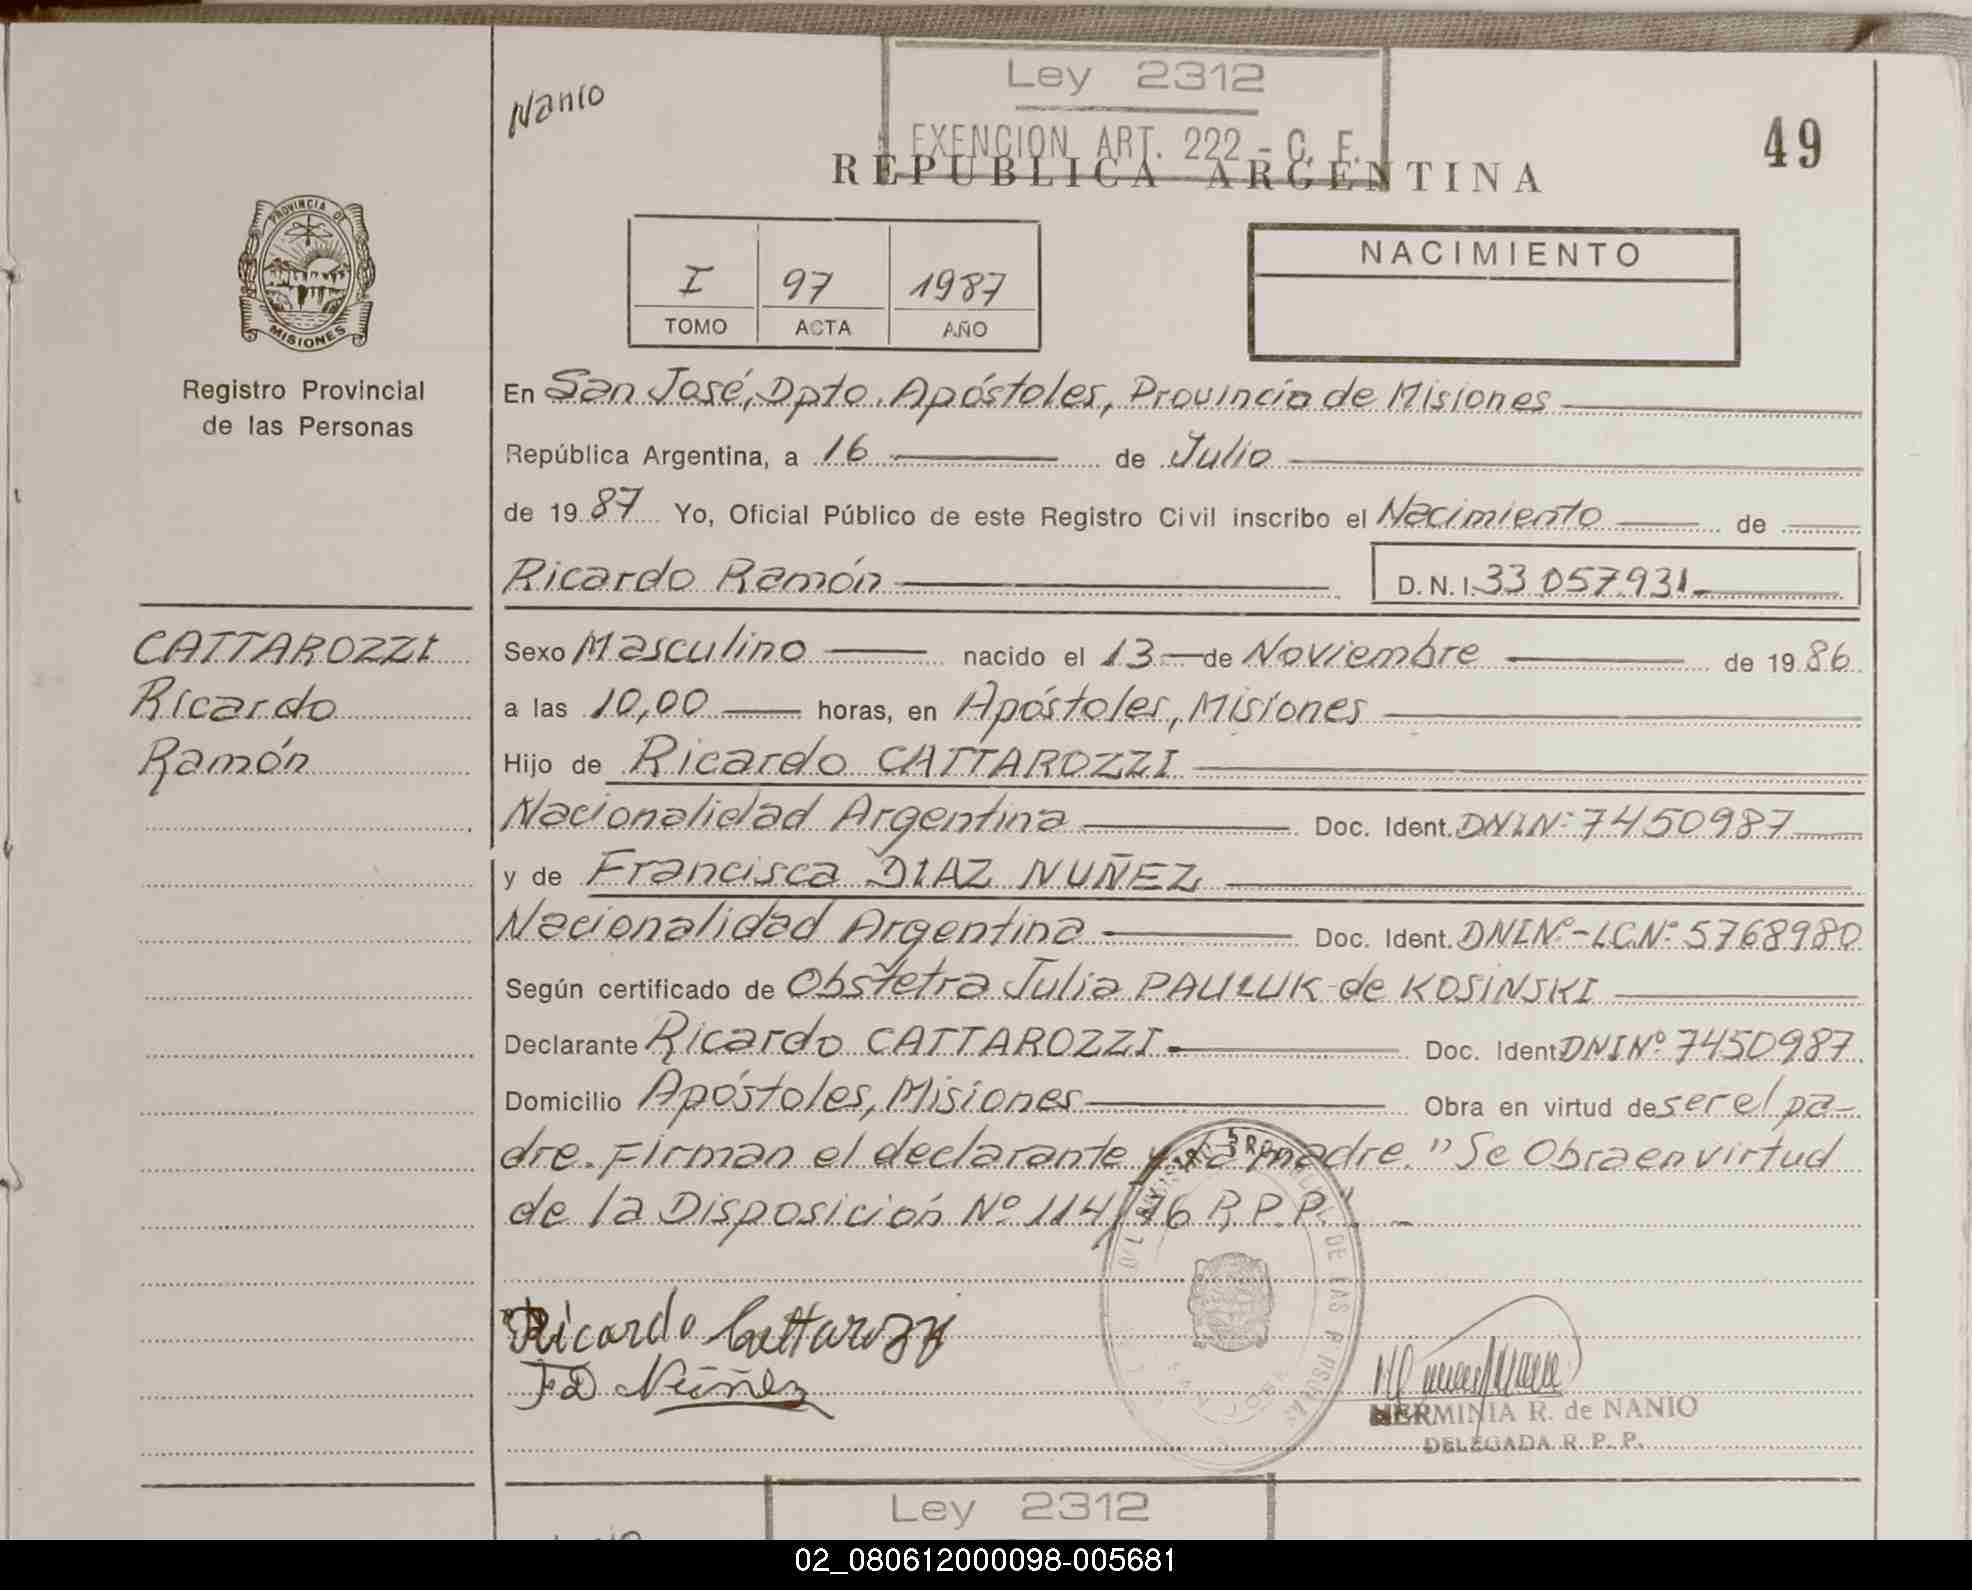 Nanio
Ley 2312
EXENCION ART. 222 - C. F.
REPUBLICA ARGENTINA
49
PROVINCIA DE
MISIONES
Registro Provincial
de las Personas
I 97 1987
TOMO ACTA AÑO
NACIMIENTO
En San José, Dpto. Apóstoles, Provincia de Misiones
República Argentina, a 16 de Julio
de 1987 Yo, Oficial Público de este Registro Civil inscribo el Nacimiento de
Ricardo Ramón D.N.I. 33 057.931
CATTAROZZI
Ricardo
Ramón
Sexo Masculino nacido el 13 de Noviembre de 1986
a las 10,00 horas, en Apóstoles, Misiones
Hijo de Ricardo CATTAROZZI
Nacionalidad Argentina Doc. Ident. DNI Nº 7450987
y de Francisca DIAZ NUÑEZ
Nacionalidad Argentina Doc. Ident. DNI Nº - LC. Nº 5768980
Según certificado de Obstetra Julia PAULUK de KOSINSKI
Declarante Ricardo CATTAROZZI Doc. Ident DNI Nº 7450987
Domicilio Apóstoles, Misiones Obra en virtud de ser el pa-
dre. Firman el declarante y la madre. "Se Obra en virtud
de la Disposición Nº 114/76 R.P.P."
Ricardo Cattarozzi
FD Núñez
HERMINIA R. de NANIO
DELEGADA R. P. P.
Ley 2312
02_080612000098-005681